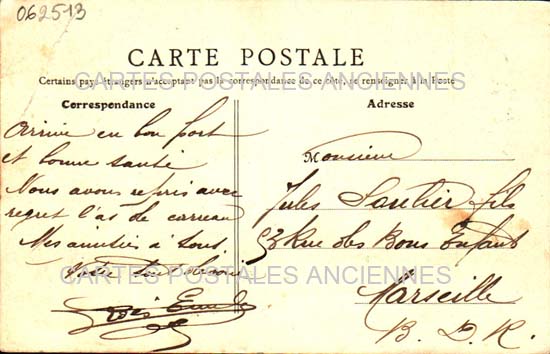 062513
CARTE POSTALE
Certains pays étrangers n'acceptant pas la correspondance de ce côté, se renseigner à la Poste
CARTES POSTALES ANCIENNES
Correspondance
Arrivé en bon port
et bonne santé
Nous avons repris avec
regret l'as de carreau
Mes amitiés à tous.
Votre tout dévoué
Adresse
Monsieur
Jules Fils
53 Rue des Bons Enfants
CARTES POSTALES ANCIENNES
Marseille
B. D. R.